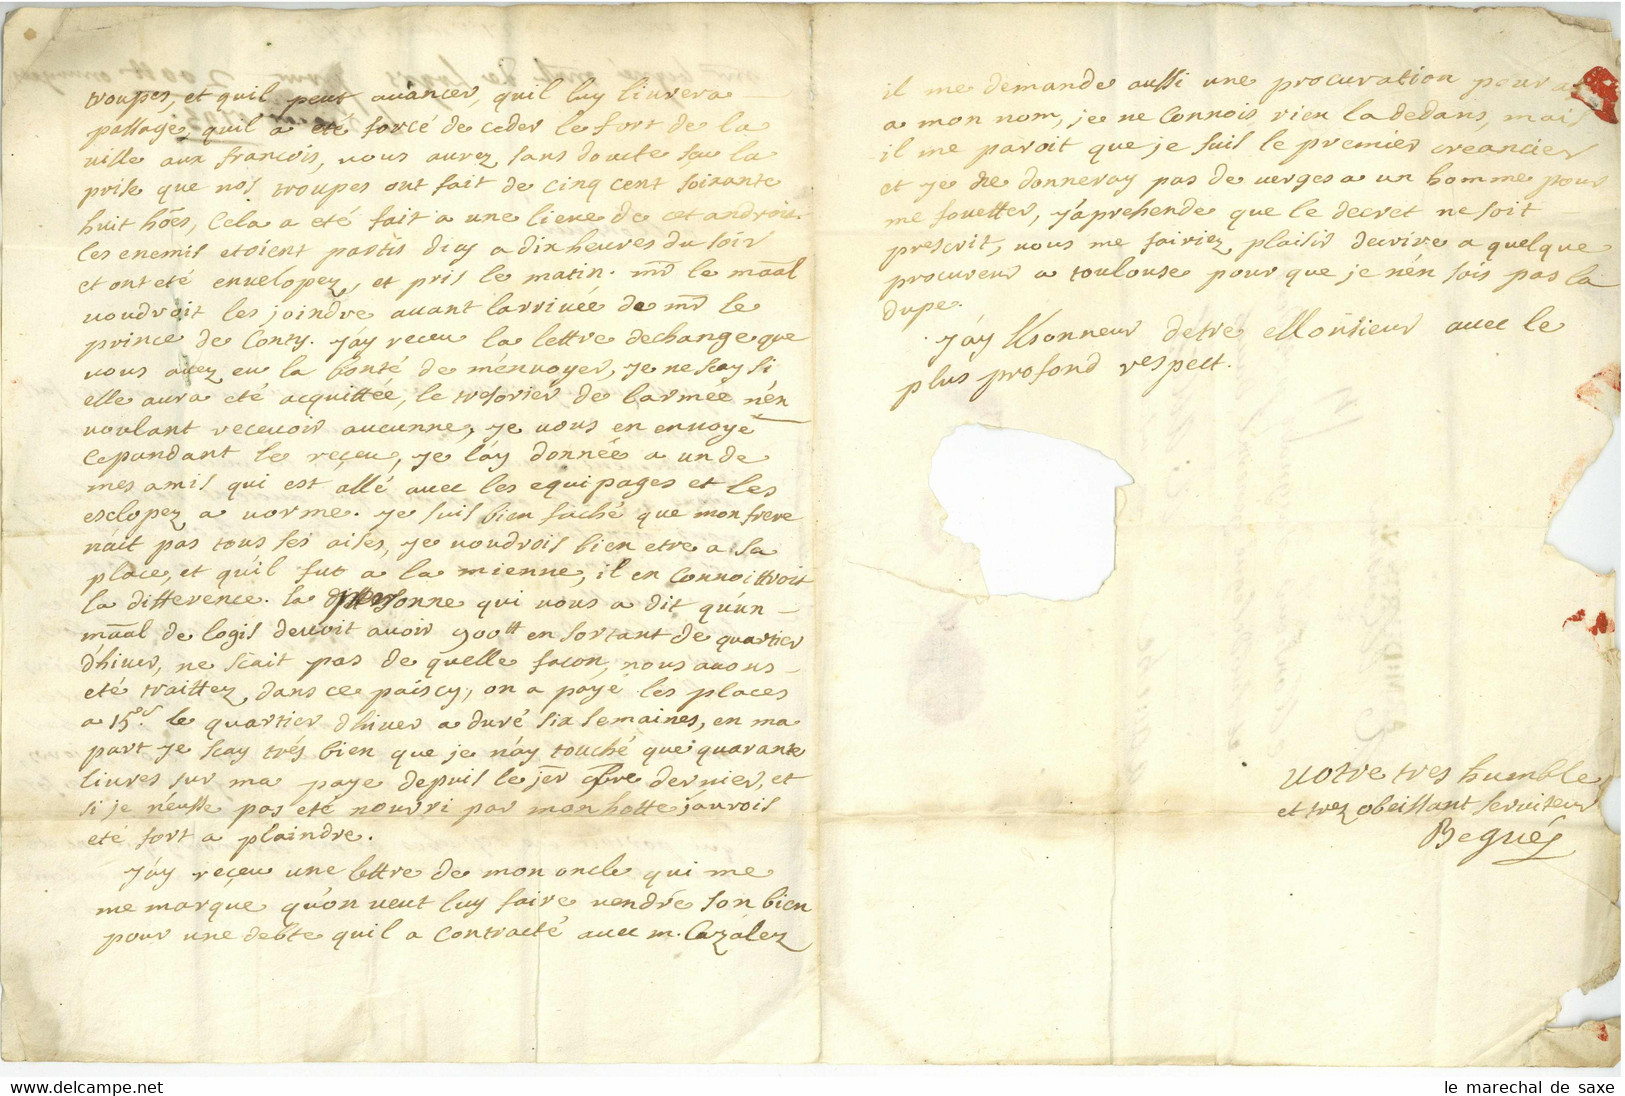 troupes, et quil peut auancer, quil luy liurera
passage, quil a été forcé de ceder le fort de la
ville aux francois, vous aurez sans doucte sçu la
prise que nos troupes ont fait de cinq cent soixante
huit hões, Cela a eté fait a une lieue de cet androit.
les enemis etoient partis dicy a dix heures du soir
et ont eté envelopez, et pris le matin. mr le maal
voudroit les joindre auant larriuée de mr le
prince de Conty. j'ay receu la lettre dechange que
vous auez eu la bonté de m'énuoyer, je ne scay si
elle aura eté acquittée, le tresorier de larmée n'én
voulant receuoir aucunne, je vous en enuoye
cepandant le reçeu, je l'ay donnée a un de
mes amis qui est allé auec les equipages et les
esclopez a vorme. je suis bien faché que mon frere
nait pas tous ses aises, je voudrois bien etre a sa
place, et qu'il fut a la mienne, il en connoittroit
la difference. la personne qui vous a dit qu'un
maal de logis deuoit auoir 900tt en sortant de quartier
d'hiuer, ne sçait pas de quelle façon, nous auons
eté traittez, dans ce païscy, on a payé les places
a 15s. le quartier dhiuer a duré six semaines, en ma
part je scay trés bien que je n'ay touché que quarante
liures sur ma paye depuis le jer 9bre dernier, et
si je n'eusse pas eté nourri par mon hotte jaurois
eté fort a plaindre.
j'ay reçeu une lettre de mon oncle qui me
me marque qu'on veut luy faire vendre son bien
pour une debte quil a contracté auec m. Cazalez
il me demande aussi une procuration pour
a mon nom, je ne Connois rien la dedans, mais
il me paroit que je suis le premier creancier
et je ne donneray pas de verges a un homme pour
me fouetter, j'aprehende que le decret ne soit
prescrit, vous me fairiez plaisir decrire a quelque
procureur a toulouse pour que je n'én sois pas la
dupe.
j'ay lhonneur detre Monsieur auec le
plus profond respect.
votre tres humble
et trez obeissant seruiteur
Begués
le marechal de saxe